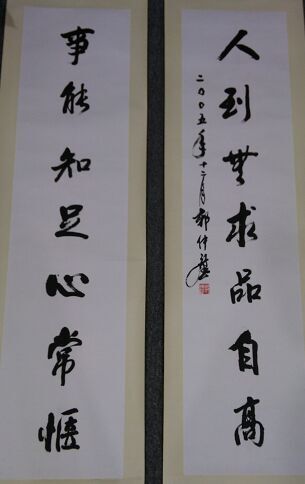 事能知足心常愜
人到無求品自高
二〇〇五年十二月郭仲